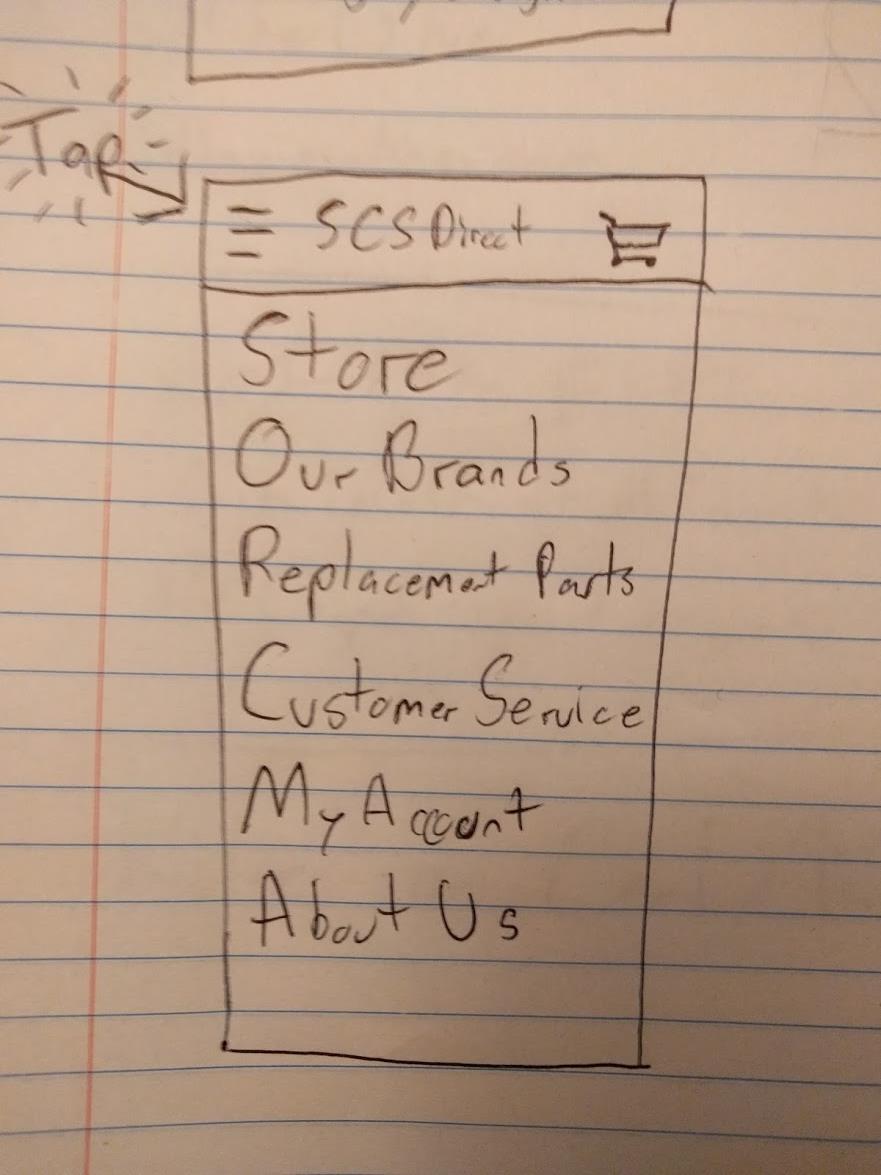 Tap
SCS Direct
Store
Our Brands
Replacement Parts
Customer Service
My Account
About Us